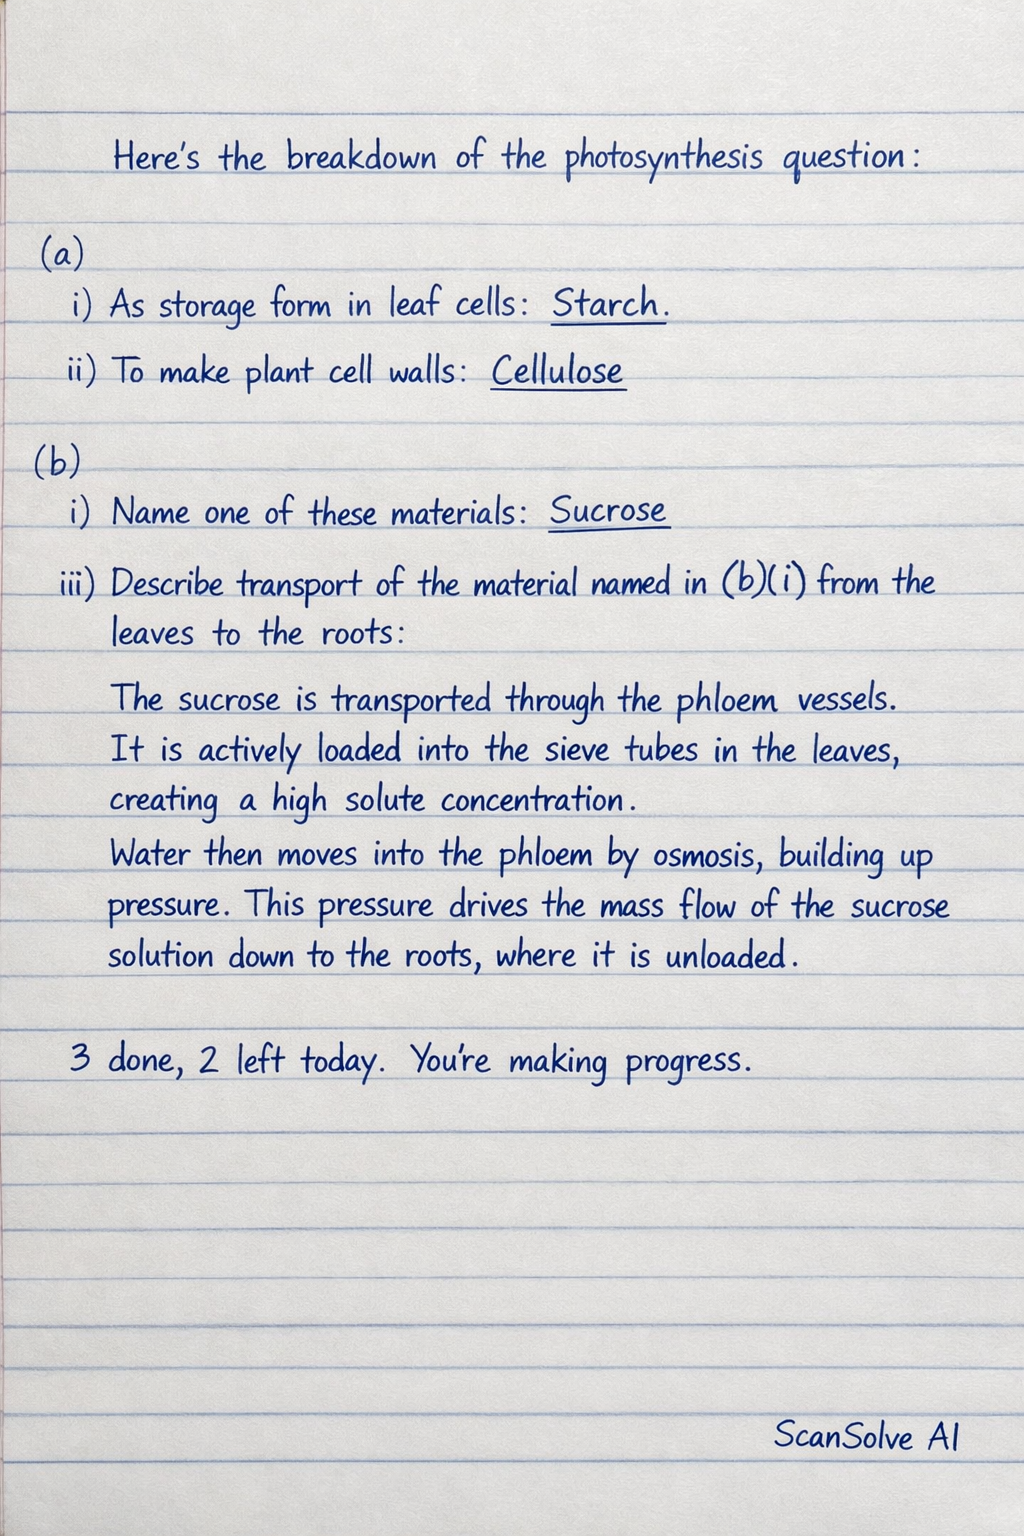 Here's the breakdown of the photosynthesis question:
(a)
i) As storage form in leaf cells: Starch.
ii) To make plant cell walls: Cellulose
(b)
i) Name one of these materials: Sucrose
iii) Describe transport of the material named in (b)(i) from the
leaves to the roots:
The sucrose is transported through the phloem vessels.
It is actively loaded into the sieve tubes in the leaves,
creating a high solute concentration.
Water then moves into the phloem by osmosis, building up
pressure. This pressure drives the mass flow of the sucrose
solution down to the roots, where it is unloaded.
3 done, 2 left today. You're making progress.
ScanSolve AI